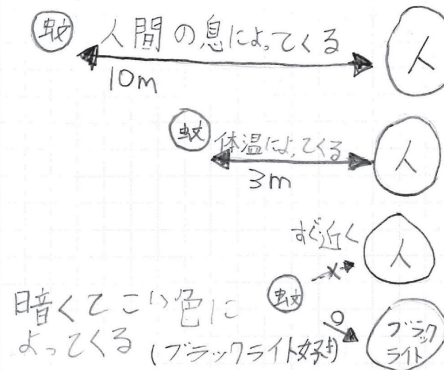 蚊 人間の息によってくる 人
10m
蚊 体温によってくる 人
3m
すぐ近く 人
蚊 ×
暗くてこい色に ○ ブラック
よってくる (ブラックライト好き) ライト